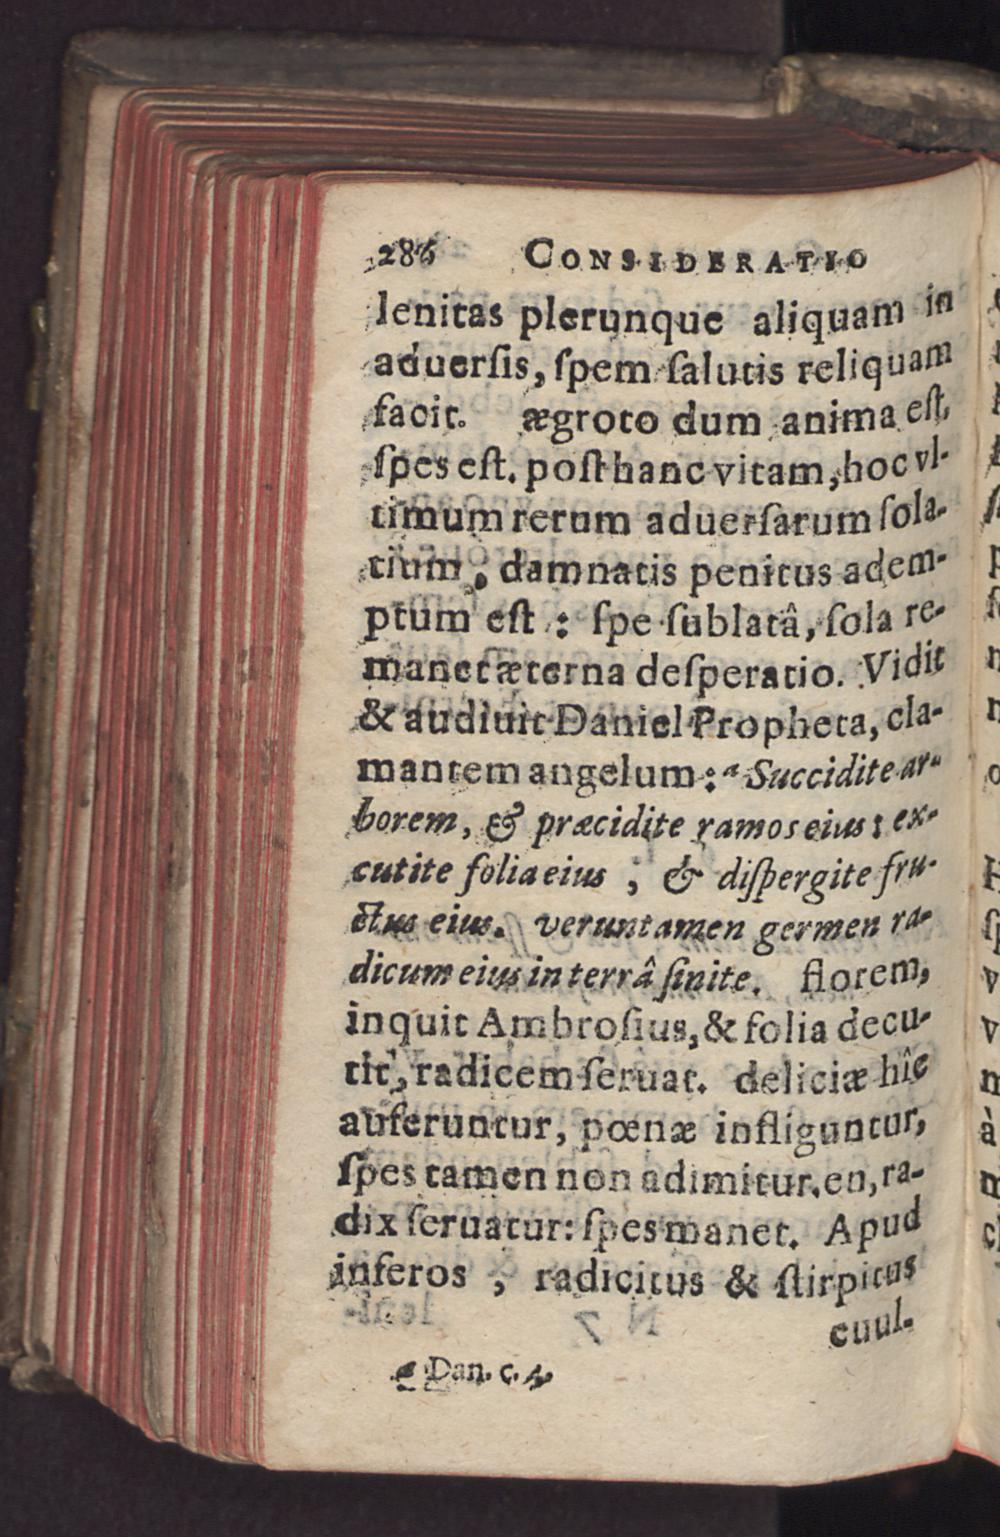 286 CONSIDERATIO
lenitas plerunque aliquam in
aduerſis, ſpem ſalutis reliquam
facit. ægroto dum anima eſt,
ſpes eſt. poſt hanc vitam, hoc vl-
timum rerum aduerſarum ſola-
tium, damnatis penitus adem-
ptum eſt: ſpe ſublatâ, ſola re-
manet æterna deſperatio. Vidit
& audiuit Daniel Propheta, cla-
mantem angelum: ª Succidite ar-
borem, & præcidite ramos eius: ex-
cutite folia eius; & diſpergite fru-
ctus eius. veruntamen germen ra-
dicum eius in terrâ ſinite. florem,
inquit Ambroſius, & folia decu-
tit, radicem ſeruat. deliciæ hîc
auferuntur, pœnæ infliguntur,
ſpes tamen non adimitur. en, ra-
dix ſeruatur: ſpes manet. Apud
inferos, radicitus & ſtirpitus
euul-
a Dan. c. 4.